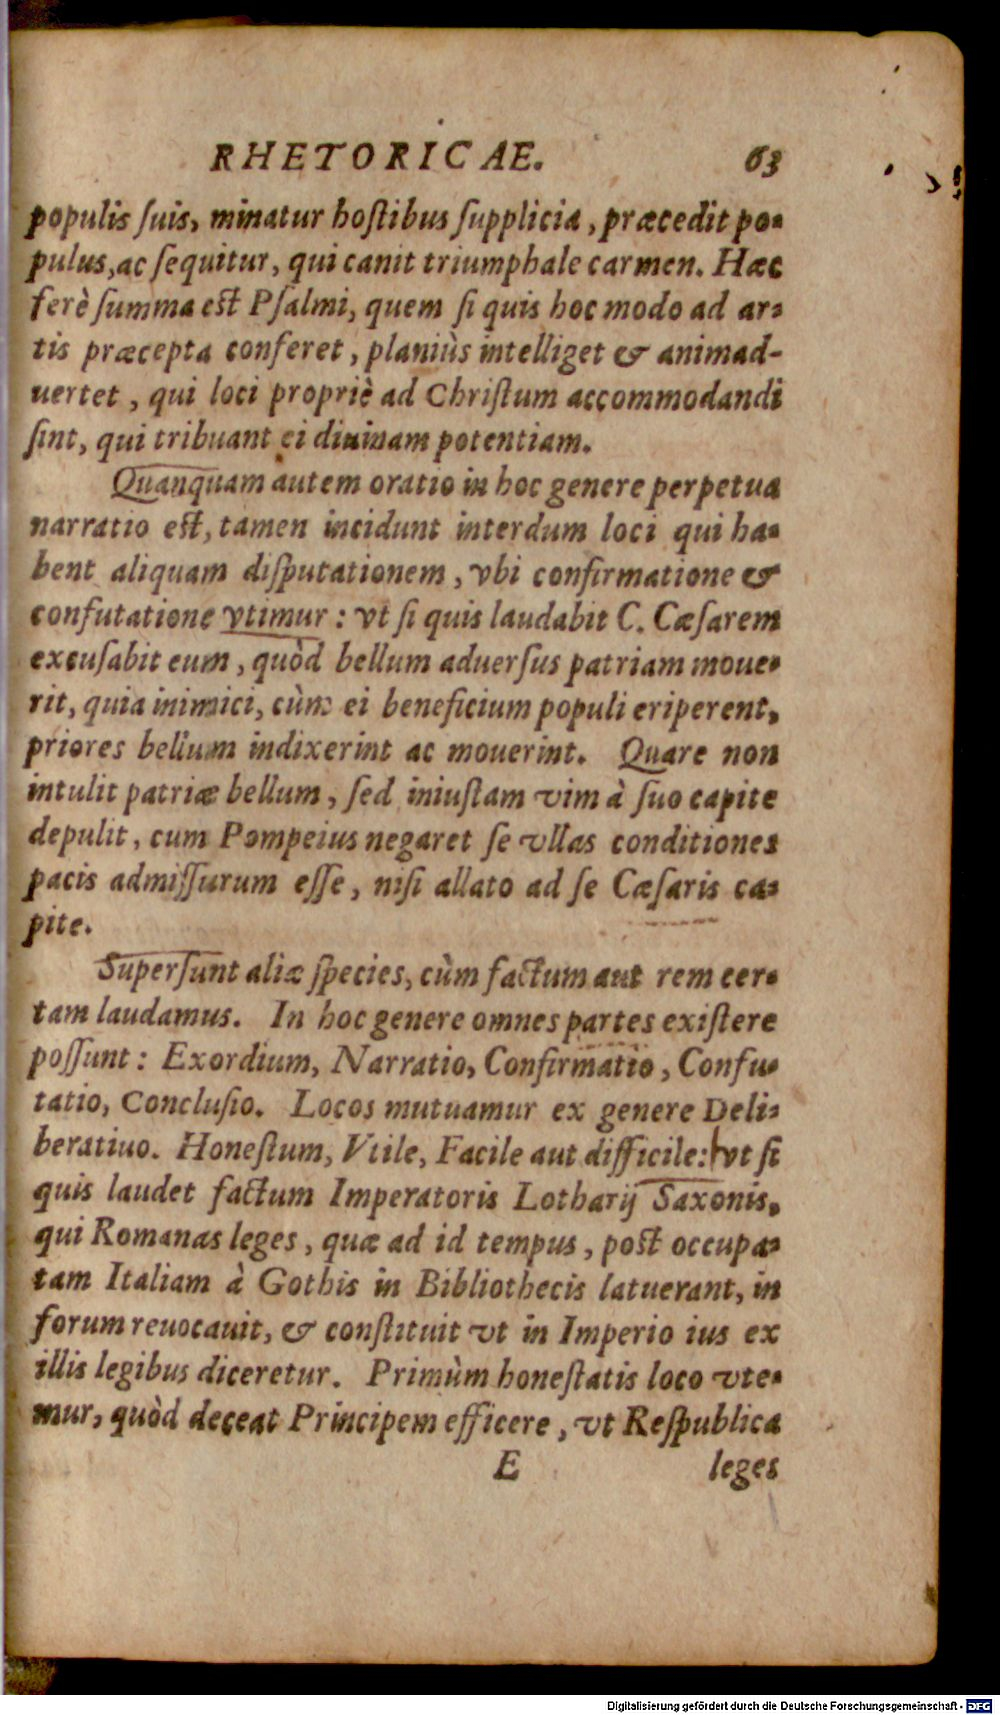 RHETORICAE. 63
populis ſuis, minatur hoſtibus ſupplicia, præcedit po-
pulus, ac ſequitur, qui canit triumphale carmen. Hæc
ferè ſumma eſt Pſalmi, quem ſi quis hoc modo ad ar-
tis præcepta conferet, planiùs intelliget & animad-
uertet, qui loci propriè ad Chriſtum accommodandi
ſint, qui tribuant ei diuinam potentiam.
Quanquam autem oratio in hoc genere perpetua
narratio eſt, tamen incidunt interdum loci qui ha-
bent aliquam diſputationem, vbi confirmatione &
confutatione vtimur: vt ſi quis laudabit C. Cæſarem
excuſabit eum, quòd bellum aduerſus patriam moue-
rit, quia inimici, cùm ei beneficium populi eriperent,
priores bellum indixerint ac mouerint. Quare non
intulit patriæ bellum, ſed iniuſtam vim à ſuo capite
depulit, cum Pompeius negaret ſe vllas conditiones
pacis admiſſurum eſſe, niſi allato ad ſe Cæſaris ca-
pite.
Superſunt aliæ ſpecies, cùm factum aut rem cer-
tam laudamus. In hoc genere omnes partes exiſtere
poſſunt: Exordium, Narratio, Confirmatio, Confu-
tatio, Concluſio. Locos mutuamur ex genere Deli-
beratiuo. Honeſtum, Vtile, Facile aut difficile: vt ſi
quis laudet factum Imperatoris Lotharij Saxonis,
qui Romanas leges, quæ ad id tempus, poſt occupa-
tam Italiam à Gothis in Bibliothecis latuerant, in
forum reuocauit, & conſtituit vt in Imperio ius ex
illis legibus diceretur. Primùm honeſtatis loco vte-
mur, quòd deceat Principem efficere, vt Reſpublica
E leges
Digitalisierung gefördert durch die Deutsche Forschungsgemeinschaft - DFG